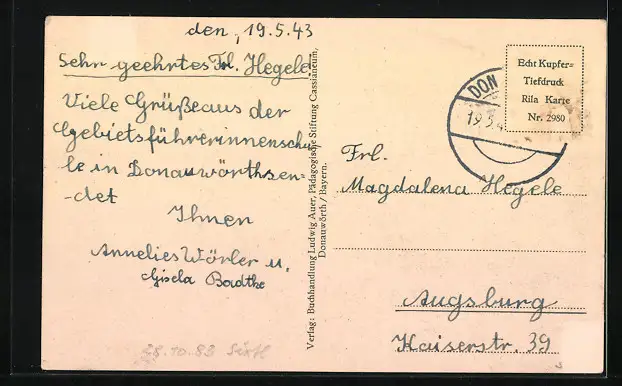 den, 19.5.43
Sehr geehrtes Frl. Hegele!
Viele Grüße aus der
Gebietsführerinnenschu-
le in Donauwörth sen-
-det
Ihnen
Annelies Wörler u.
Gisela Badtke
28.10.83
Verlag: Buchhandlung Ludwig Auer, Pädagogische Stiftung Cassianeum,
Donauwörth / Bayern.
DON
19.5.4
Echt Kupfer=
Tiefdruck
Rila Karte
Nr. 2980
Frl.
Magdalena Hegele
Augsburg
Kaiserstr. 39